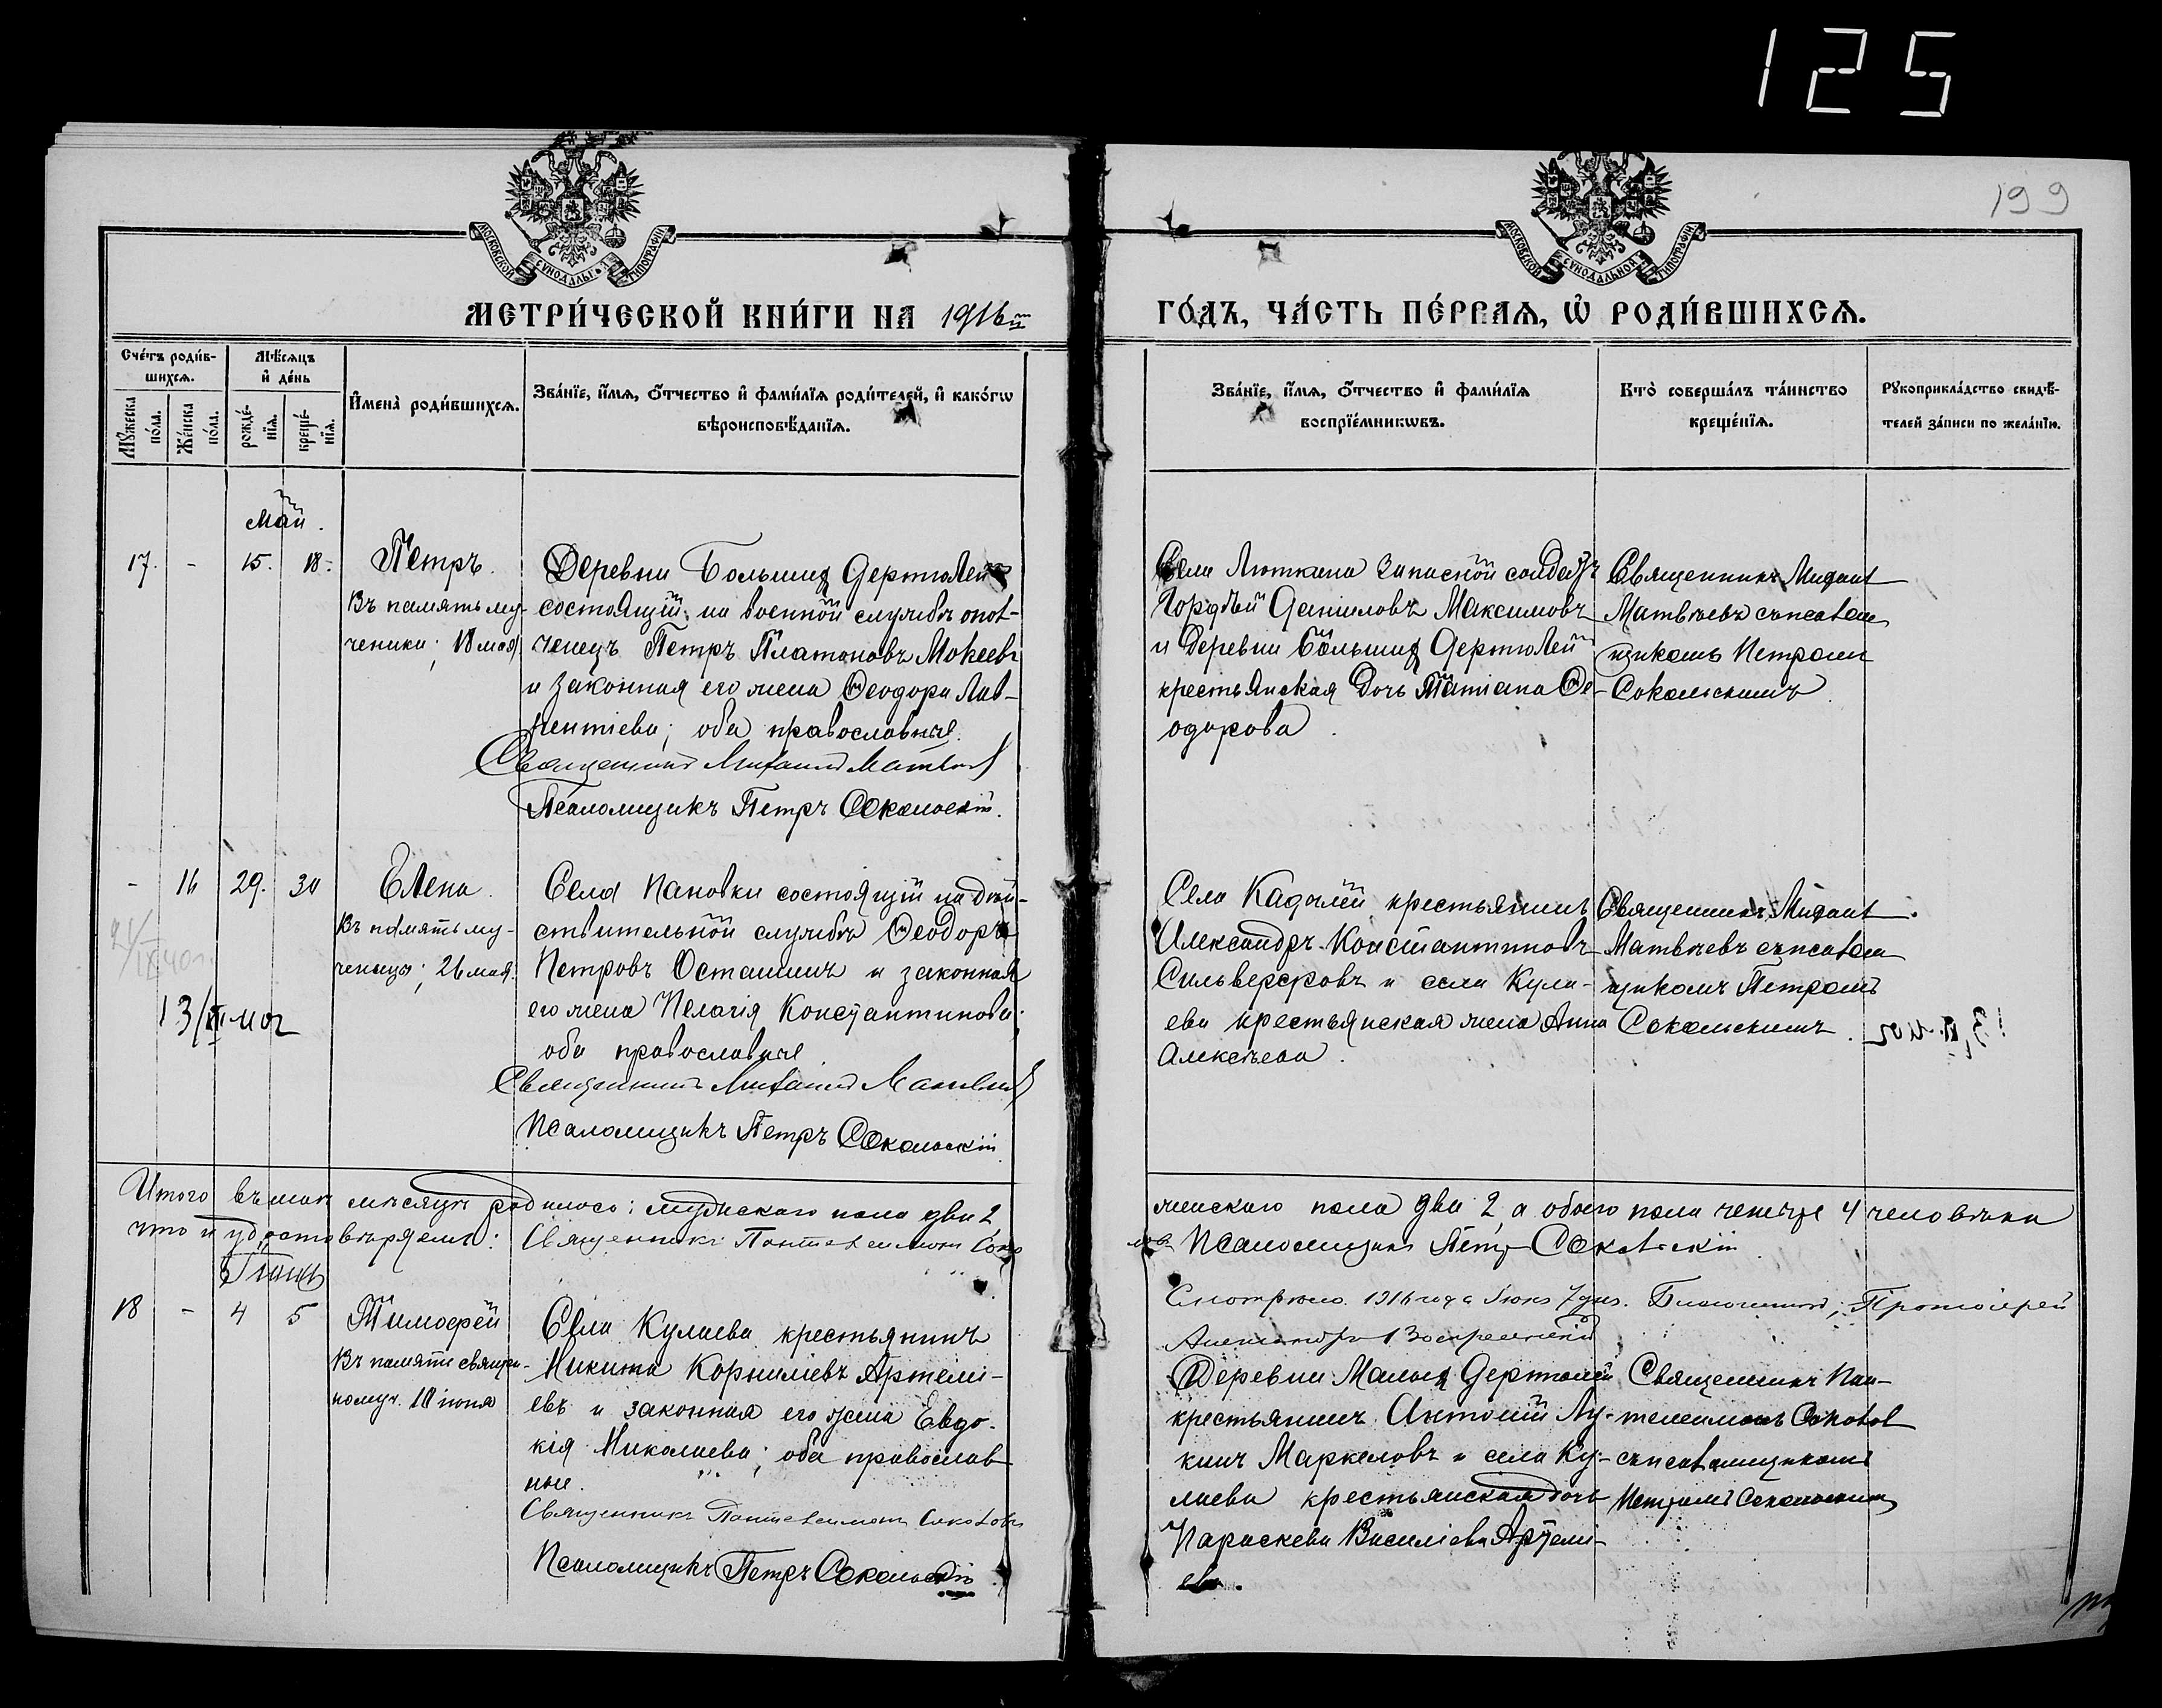 125
199
МОСКОВСКОЙ СУНОДАЛЬНОЙ ТИПОГРАФІИ
МОСКОВСКОЙ СУНОДАЛЬНОЙ ТИПОГРАФІИ
МЕТРИ́ЧЕСКОЙ КНИ́ГИ НА 1916й
ГО́ДЪ, ЧА́СТЬ ПЕ́РВАѦ, Ѡ҆ РОДИ́ВШИХСѦ.
Сче́тъ роди́в-
шихсѧ.
Мꙋ́жеска по́ла.
Же́нска по́ла.
Мѣ́сѧцъ
и҆ де́нь
рожде́-
нїѧ.
креще́-
нїѧ.
И҆мена̀ роди́вшихсѧ.
Зва́нїе, и҆́мѧ, ѻ҆́тчество и҆ фами́лїѧ роди́телей, и҆ како́гѡ
вѣроисповѣ́данїѧ.
Зва́нїе, и҆́мѧ, ѻ҆́тчество и҆ фами́лїѧ
воспрїе́мникѡвъ.
Кто̀ соверша́лъ та́инство
креще́нїѧ.
Рꙋкоприкла́дство свидѣ́-
телей за́писи по жела́нїю.
Май.
17. - 15. 18.
Петръ.
Въ память му-
ченика; 18 мая
Деревни Большихъ Дертюлей
состоящій на военной службѣ опол-
ченецъ Петръ Платоновъ Мокеевъ
и законная его жена Ѳеодора Лав-
рентіева; оба православные.
Священникъ Михаилъ Матвѣевъ
Псаломщикъ Петръ Сокольскій.
Села Люткина запасной солдатъ
Гордѣй Даниловъ Максимовъ
и деревни Большихъ Дертюлей
крестьянская дочь Татіана Ѳе-
одорова.
Священникъ Михаилъ
Матвѣевъ съ псалом
щикомъ Петромъ
Сокольскимъ.
- 16 29. 30
Елена.
Въ память му-
ченицы; 26 мая.
21/IX 40г.
13/XI 40г
Села Пановки состоящій на дѣй-
ствительной службѣ Ѳеодоръ
Петровъ Осташинъ и законная
его жена Пелагія Константинова;
оба православные
Священникъ Михаилъ Матвѣевъ
Псаломщикъ Петръ Сокольскій
Села Кадалей крестьянинъ
Александръ Константиновъ
Сильверстровъ и села Кула-
ева крестьянская жена Анна
Алексѣева.
Священникъ Михаилъ
Матвѣевъ съ псалом
щикомъ Петромъ
Сокольскимъ.
Итого въ маѣ мѣсяцѣ родилось: мужскаго пола два 2,
женскаго пола два 2, а обоего пола четыре 4 человѣка
что и удостовѣряемъ: Священникъ Пантелеимонъ Соко
ловъ Псаломщикъ Петръ Сокольскій
Іюнь
Смотрѣлъ. 1916 года Іюня 7 дня. Благочинный, Протоіерей
Александръ Воскресенскій
18 - 4 5
Тимофей
Въ память священ-
номуч. 10 іюня
Села Кулаева крестьянинъ
Никита Корниліевъ Артемі-
евъ и законная его жена Евдо-
кія Николаева; оба православ-
ные.
Священникъ Пантелеимонъ Соколовъ
Псаломщикъ Петръ Сокольскій
Деревни Малыхъ Дертюлей
крестьянинъ Антоній Лу-
кинъ Маркеловъ и села Ку-
лаева крестьянская дочь
Параскева Василіева Артемі-
ева.
Священникъ Пан-
телеимонъ Соколов
съ псаломщикомъ
Петромъ Сокольскимъ